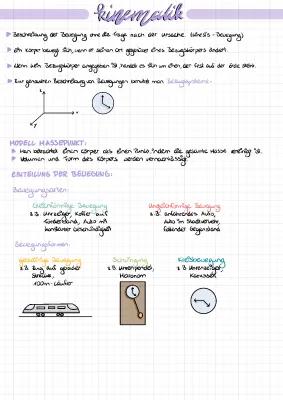 kinematik
Beschreibung der Bewegung ohne die Frage nach der Ursache (kinesis = Bewegung)
Ein Körper bewegt sich, wenn er seinen Ort gegenüber eines Bezugskörpers ändert.
Wenn kein Bezugskörper angegeben ist, handelt es sich um einen, der fest auf der Erde steht.
Zur genaueren Beschreibung von Bewegungen benutzt man Bezugssysteme.
z
x
y
MODELL MASSEPUNKT:
Man betrachtet einen Körper als einen Punkt, indem die gesamte Masse vereinigt ist.
Volumen und Form des Körpers werden vernachlässigt.
EINTEILUNG DER BEWEGUNG:
Bewegungsarten:
Gleichförmige Bewegung
Ungleichförmige Bewegung
z.B. Uhrzeiger, Koffer auf
z.B. anfahrendes Auto,
Förderband, Auto mit
Auto im Stadtverkehr,
konstanter Geschwindigkeit
fallender Gegenstand
Bewegungsformen:
Geradlinige Bewegung
Schwingung
Kreisbewegung
z.B. Zug auf gerader
z.B. Uhrenpendel,
z.B. Uhrenzeiger,
Strecke,
Metronom
Karussell
100m-Läufer